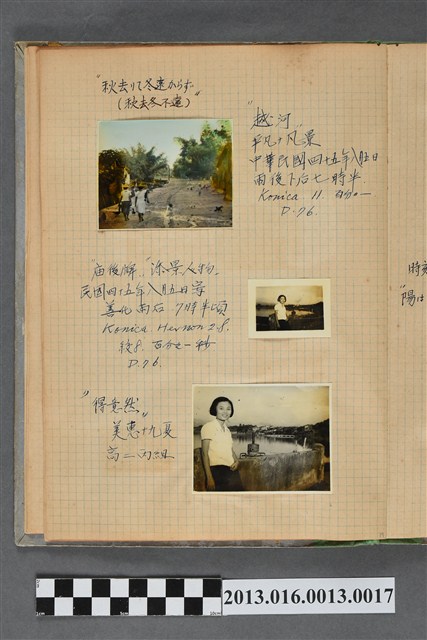 "秋去りて冬遠からず"
(秋去冬不遠)
"越河"
平凡ナ風景
中華民國四十五年八月五日
雨後下后七時半
Konica 11. 百分一
D.76.
"庙後解"添景人物.
民國四五年八月五日
善化雨后 7時半頃
Konica Hexnon 2.8.
絞8. 百分之一秒
D.76.
"得意然"
美惠十九夏
高二丙組
時
"陽は
2013.016.0013.0017